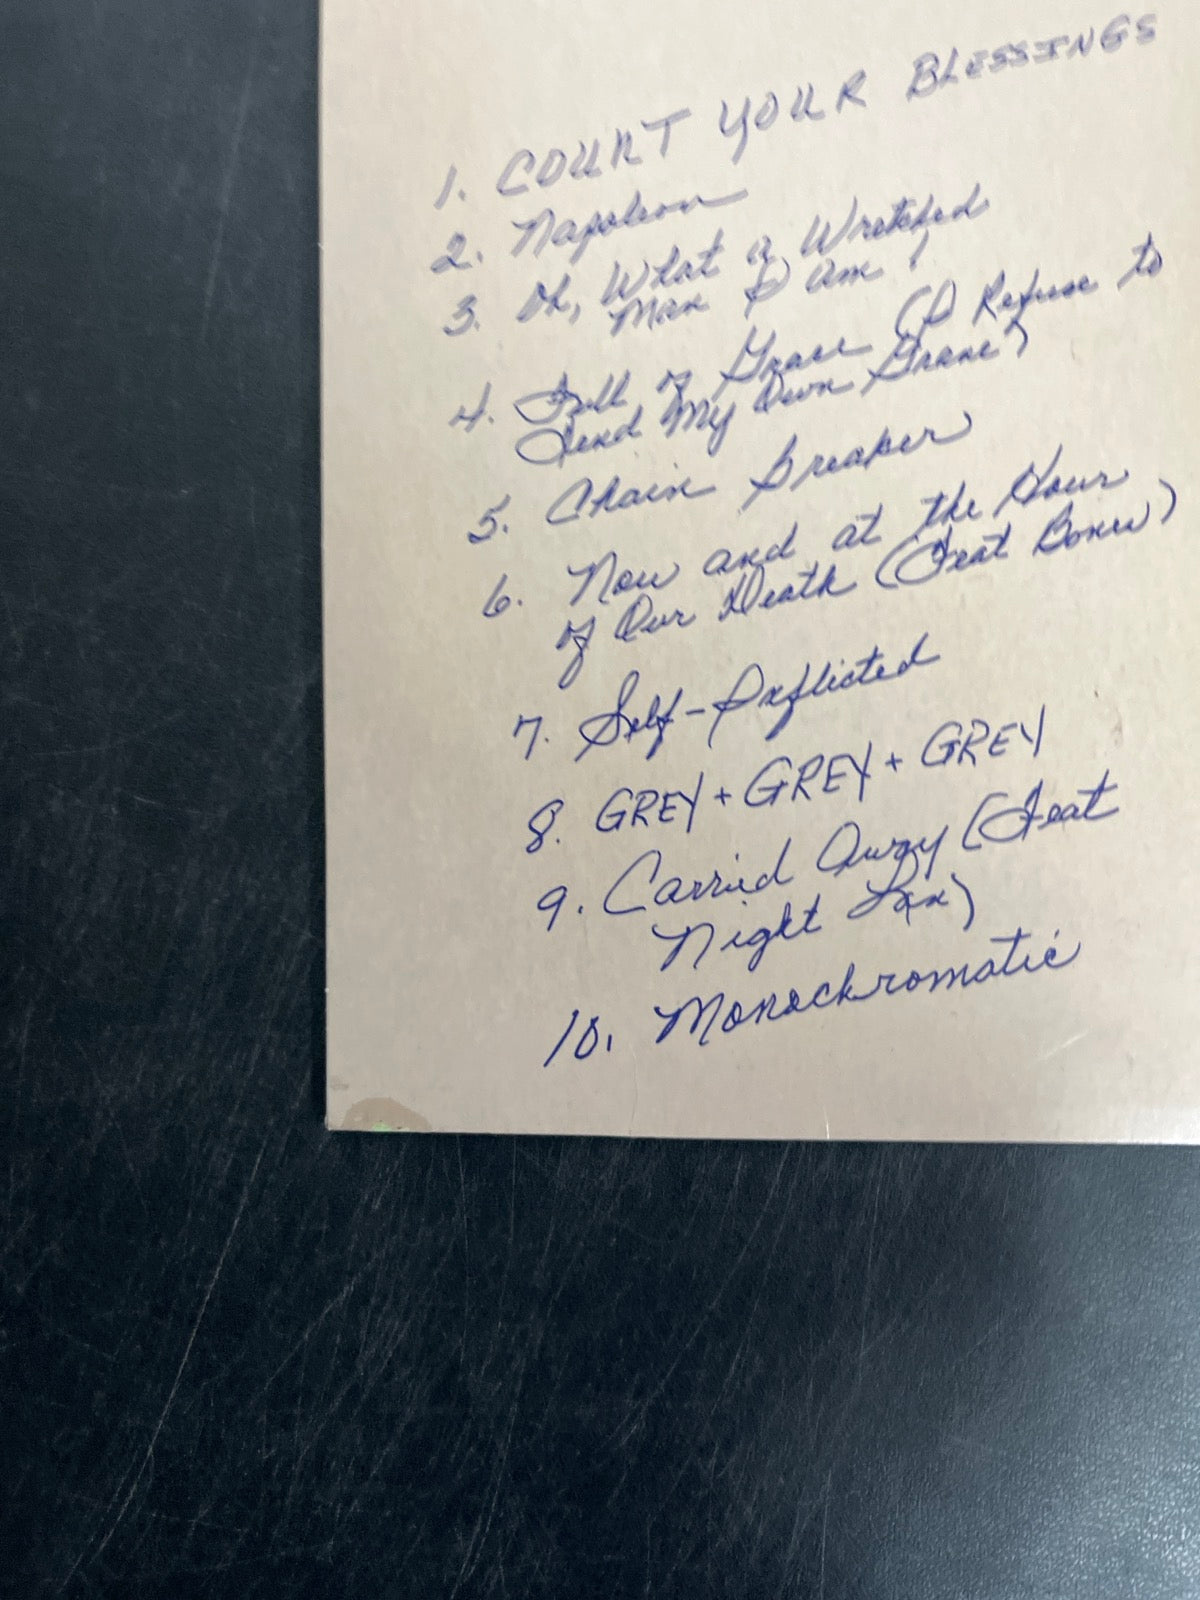 1. COUNT YOUR BLESSINGS
2. Napoleon
3. Oh, What a Wretched
Man I am!
4. Full of Grace (I Refuse to
Tend My Own Grave)
5. Chain breaker
6. Now and at the Hour
of Our Death (Feat Bones)
7. Self-Inflicted
8. GREY + GREY + GREY
9. Carried Away (Feat
Night Lxn)
10. Monochromatic